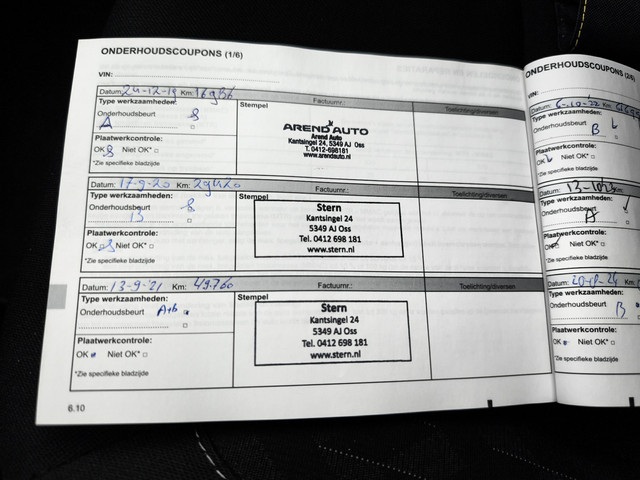 ONDERHOUDSCOUPONS (1/6)
VIN:
Datum: 24-12-19 Km: 16986
Factuurnr.:
Toelichting/diversen
Type werkzaamheden:
Onderhoudsbeurt
A
Plaatwerkcontrole:
OK Niet OK* □
*Zie specifieke bladzijde
Stempel
AREND AUTO
Arend Auto
Kantsingel 24, 5349 AJ Oss
T. 0412-698181
www.arendauto.nl
Datum: 17-9-20 Km: 29420
Factuurnr.:
Toelichting/diversen
Type werkzaamheden:
Onderhoudsbeurt
B
Plaatwerkcontrole:
OK Niet OK* □
*Zie specifieke bladzijde
Stempel
Stern
Kantsingel 24
5349 AJ Oss
Tel. 0412 698 181
www.stern.nl
Datum: 13-9-21 Km: 49.760
Factuurnr.:
Toelichting/diversen
Type werkzaamheden:
Onderhoudsbeurt A+b
Plaatwerkcontrole:
OK Niet OK* □
*Zie specifieke bladzijde
Stempel
Stern
Kantsingel 24
5349 AJ Oss
Tel. 0412 698 181
www.stern.nl
6.10
ONDERHOUDSCOUPONS (2/6)
VIN:
Datum: 6-10-'22 Km:
Type werkzaamheden:
Onderhoudsbeurt
B
Plaatwerkcontrole:
OK Niet OK* □
*Zie specifieke bladzijde
Type werkzaamheden:
Onderhoudsbeurt
A
Plaatwerkcontrole:
OK Niet OK* □
*Zie specifieke bladzijde
Datum:
Type werkzaamheden:
Onderhoudsbeurt B
Plaatwerkcontrole:
OK Niet OK* □
*Zie specifieke bladzijde